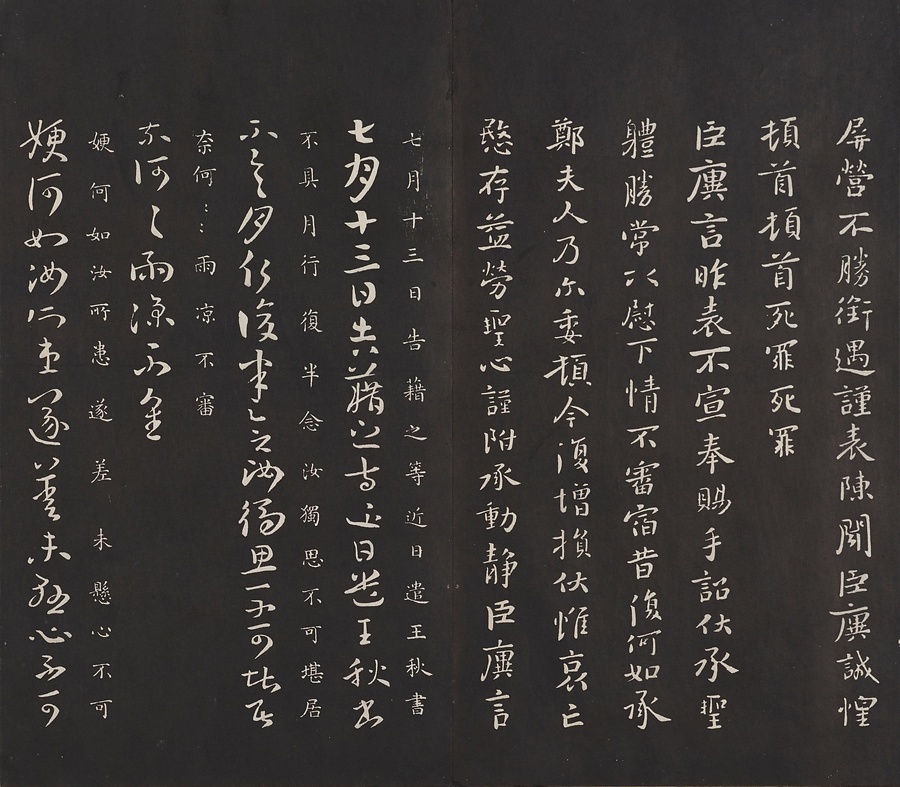 屏營不勝銜遇謹表陳聞臣廙誠惶
頓首頓首死罪死罪
臣廙言昨表不宣奉賜手詔伏承聖
體勝常以慰下情不審宿昔復何如承
鄭夫人乃尒委頓今復增損伏惟哀亡
愍存益勞聖心謹附承動静臣廙言
七月十三日告藉之等近日遣王秋書
七月十三日告藉之等近日遣王秋書
不具月行復半念汝獨思不可堪居
不具月行復半念汝獨思不可堪居
奈何：：雨凉不審
奈何〻雨凉不審
㛐何如汝所患遂差未懸心不可
㛐何如汝所患遂差未懸心不可